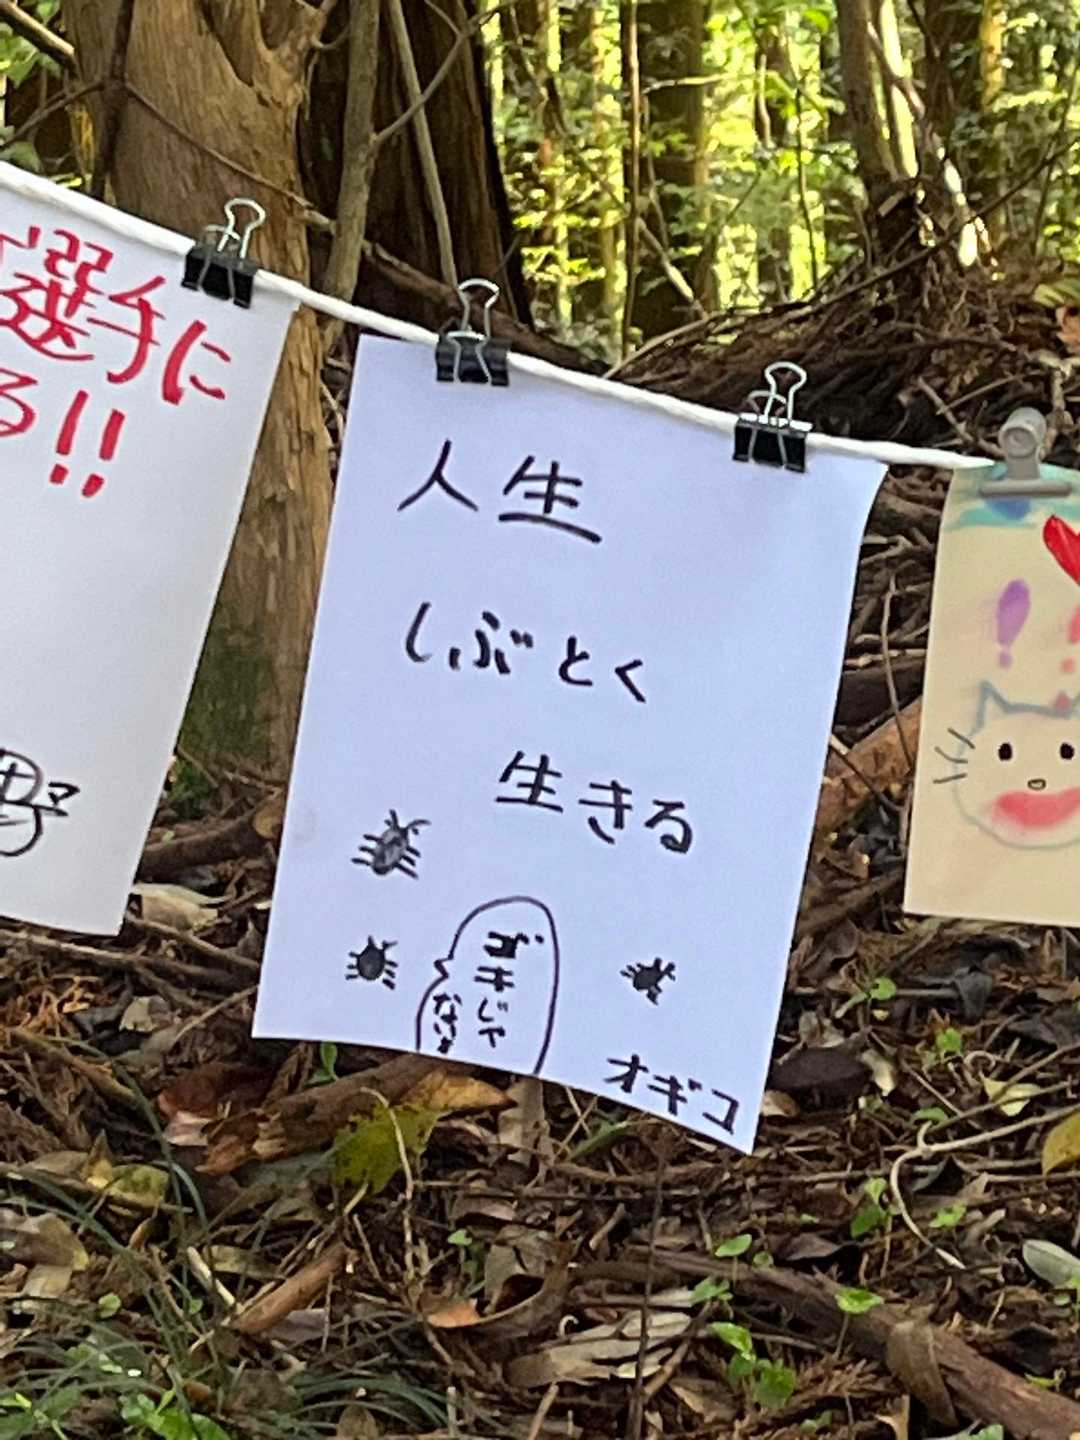 選手に
る!!
野
マ
人生
しぶとく
生きる
ゴキじゃ
ないよ
オギコ
!